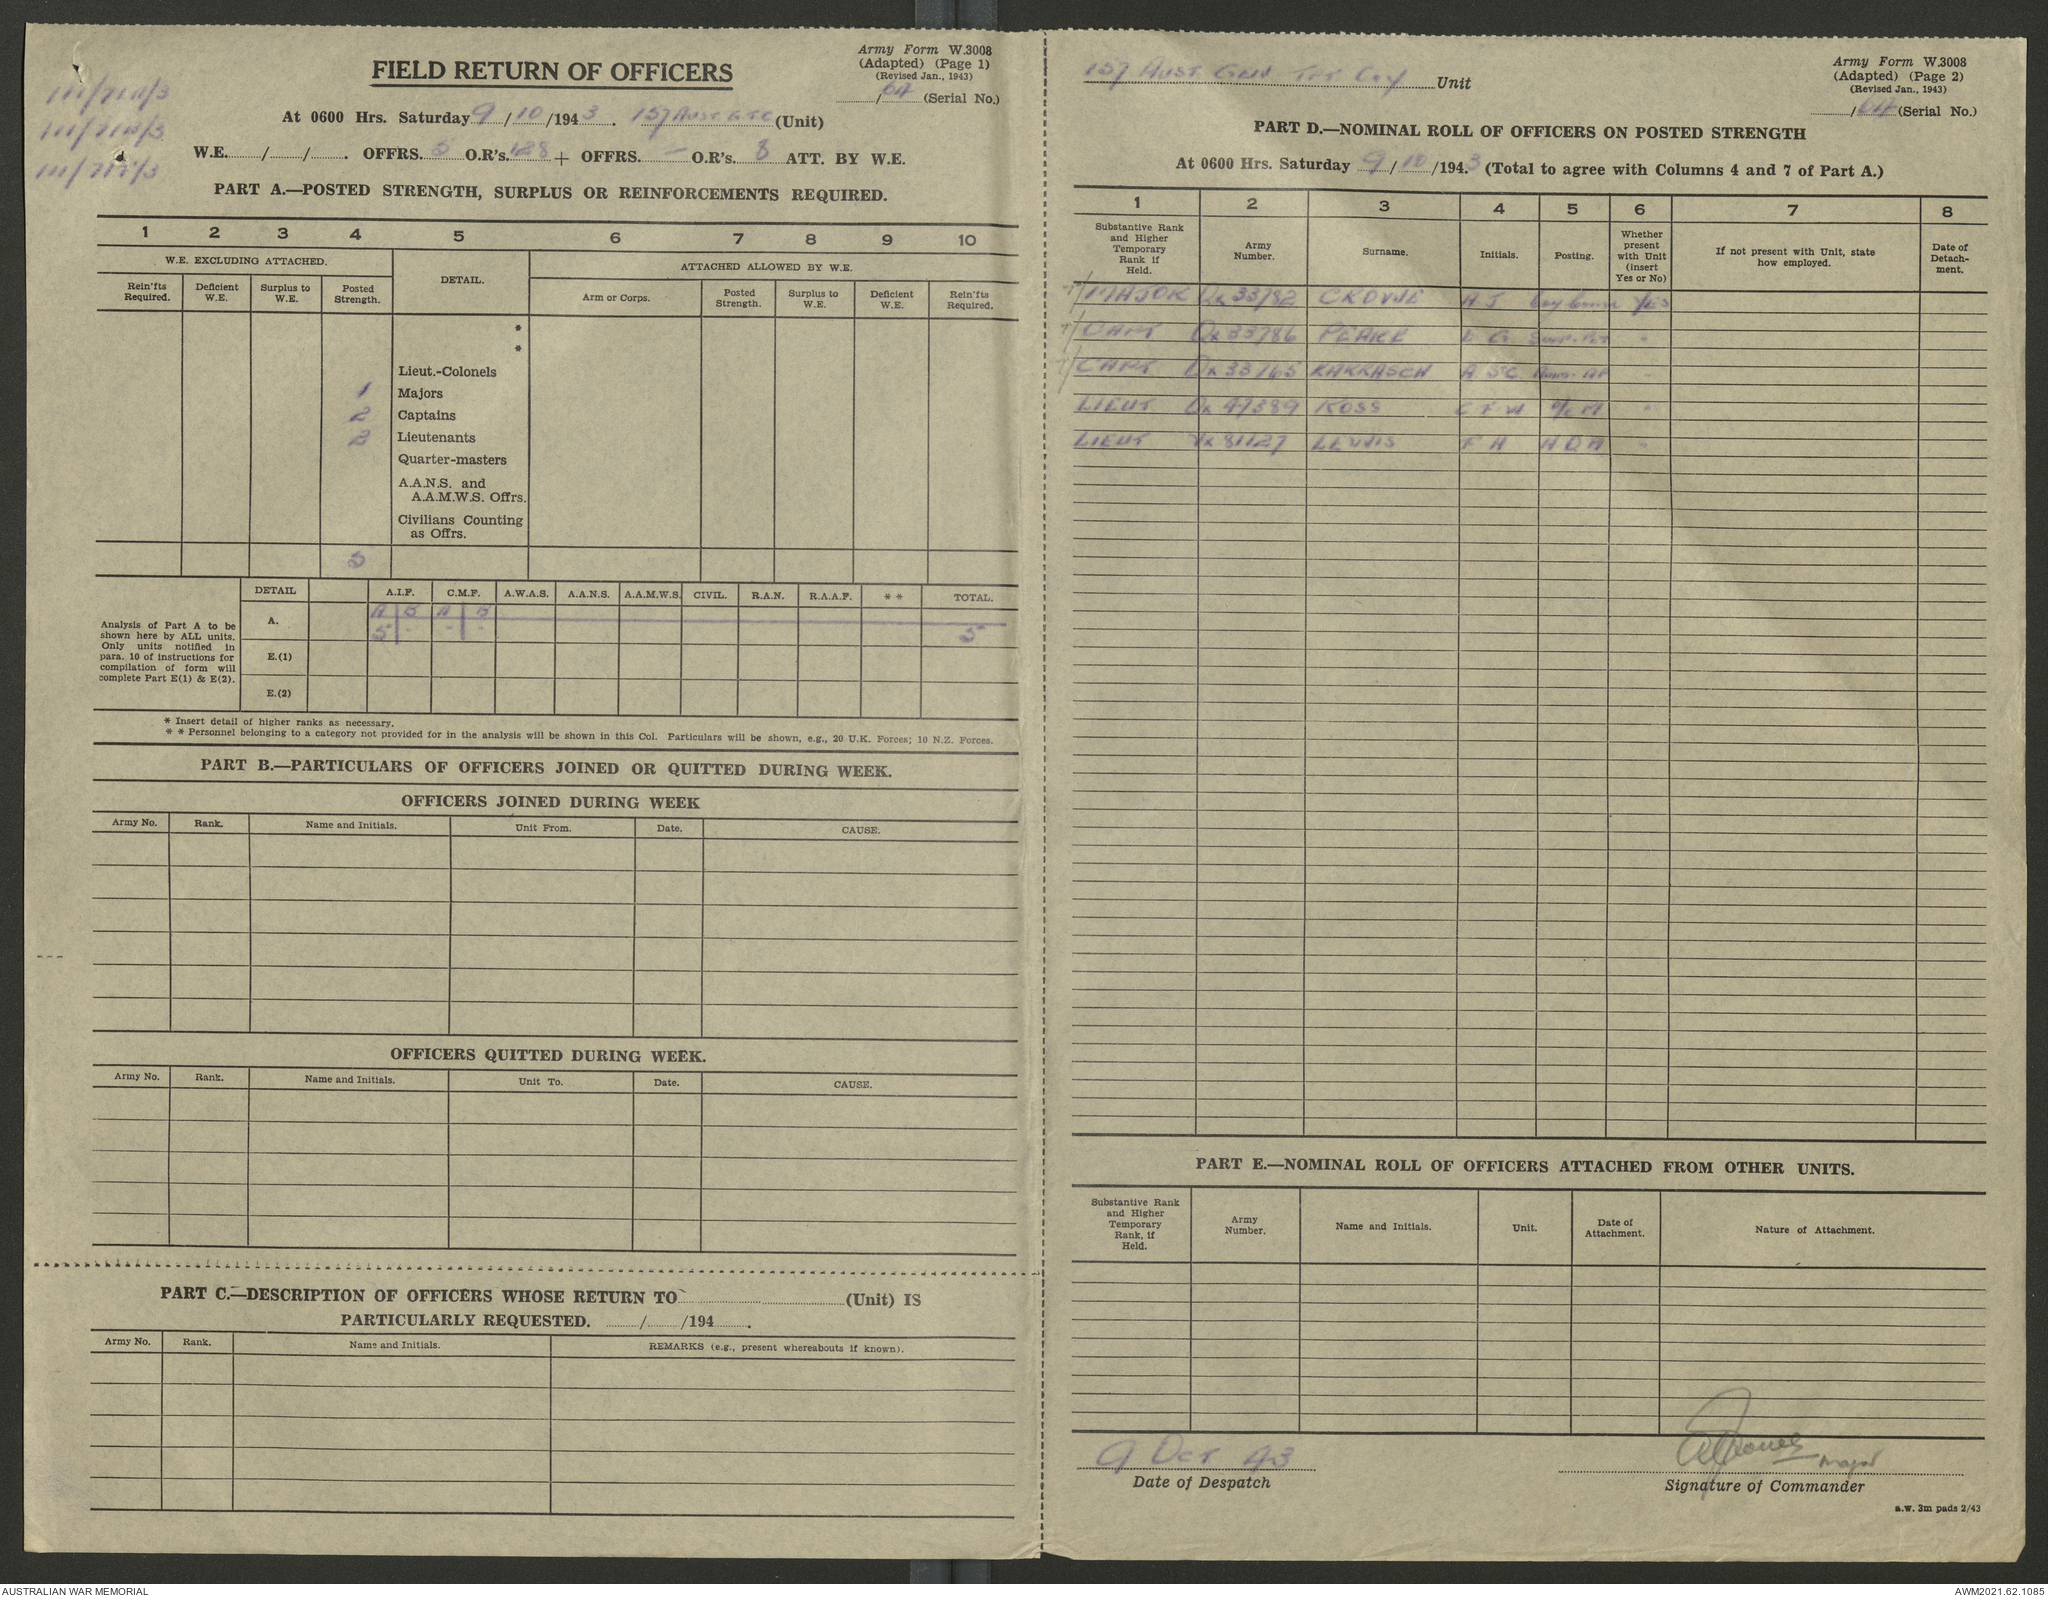 111/7111/3
FIELD RETURN OF OFFICERS
Army Form W.3008
(Adapted) (Page 1)
(Revised Jan., 1943)
/64 (Serial No.)
At 0600 Hrs. Saturday 9/10/1943. 157 AUST G.T.C (Unit)
W.E. / / . OFFRS. 5 O.R's. 128 + OFFRS. - O.R's. 8 ATT. BY W.E.
PART A.—POSTED STRENGTH, SURPLUS OR REINFORCEMENTS REQUIRED.
1 2 3 4 5 6 7 8 9 10
W.E. EXCLUDING ATTACHED. DETAIL. ATTACHED ALLOWED BY W.E.
Rein'fts Required. Deficient W.E. Surplus to W.E. Posted Strength. Arm or Corps. Posted Strength. Surplus to W.E. Deficient W.E. Rein'fts Required.
*
*
Lieut.-Colonels
1 Majors
2 Captains
2 Lieutenants
Quarter-masters
A.A.N.S. and
A.A.M.W.S. Offrs.
Civilians Counting
as Offrs.
5
Analysis of Part A to be
shown here by ALL units.
Only units notified in
para. 10 of instructions for
compilation of form will
complete Part E(1) & E(2).
DETAIL A.I.F. C.M.F. A.W.A.S. A.A.N.S. A.A.M.W.S. CIVIL. R.A.N. R.A.A.F. * * TOTAL.
A. A B A B
5 - - - 5
E.(1)
E.(2)
* Insert detail of higher ranks as necessary.
* * Personnel belonging to a category not provided for in the analysis will be shown in this Col. Particulars will be shown, e.g., 20 U.K. Forces; 10 N.Z. Forces.
PART B.—PARTICULARS OF OFFICERS JOINED OR QUITTED DURING WEEK.
OFFICERS JOINED DURING WEEK
Army No. Rank. Name and Initials. Unit From. Date. CAUSE.
OFFICERS QUITTED DURING WEEK.
Army No. Rank. Name and Initials. Unit To. Date. CAUSE.
PART C.—DESCRIPTION OF OFFICERS WHOSE RETURN TO (Unit) IS
PARTICULARLY REQUESTED. / /194 .
Army No. Rank. Name and Initials. REMARKS (e.g., present whereabouts if known).
157 AUST GEN TPT COY Unit
Army Form W.3008
(Adapted) (Page 2)
(Revised Jan., 1943)
/64 (Serial No.)
PART D.—NOMINAL ROLL OF OFFICERS ON POSTED STRENGTH
At 0600 Hrs. Saturday 9/10/1943 (Total to agree with Columns 4 and 7 of Part A.)
1 2 3 4 5 6 7 8
Substantive Rank and Higher Temporary Rank if Held. Army Number. Surname. Initials. Posting. Whether present with Unit (insert Yes or No) If not present with Unit, state how employed. Date of Detach-ment.
MAJOR Qx 33782 CROWE A J Coy Comm YES
CAPT Qx 33786 PEAKE "
CAPT Qx 33765 KARRASCH A S C "
LIEUT Qx 47389 ROSS C F W O/C M "
LIEUT Vx 81127 LEWIS F H "
PART E.—NOMINAL ROLL OF OFFICERS ATTACHED FROM OTHER UNITS.
Substantive Rank and Higher Temporary Rank, if Held. Army Number. Name and Initials. Unit. Date of Attachment. Nature of Attachment.
9 OCT 43
Date of Despatch
Major
Signature of Commander
a.w. 3m pads 2/43
AUSTRALIAN WAR MEMORIAL
AWM2021.62.1085